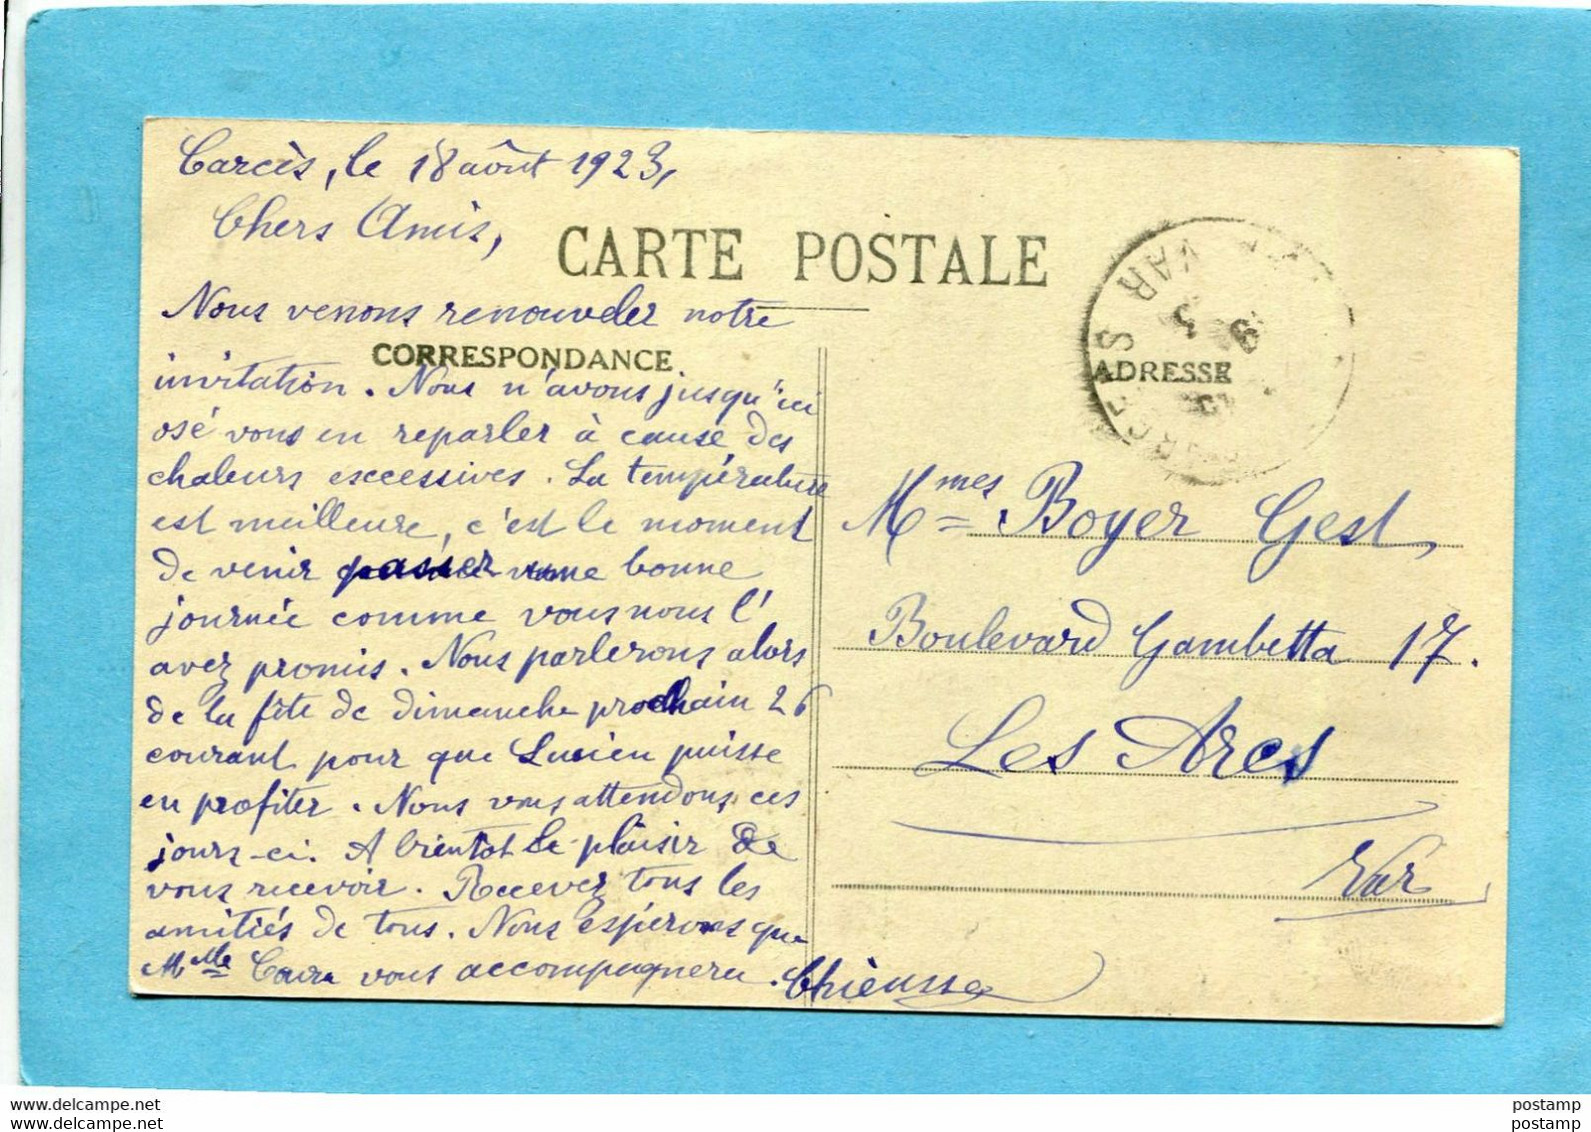 Carcès, le 18 août 1923,
Chers Amis,
CARTE POSTALE
Nous venons renouveler notre
CORRESPONDANCE
invitation. Nous n'avons jusqu'ici
osé vous en reparler à cause des
chaleurs excessives. La température
est meilleure, c'est le moment
de venir passer une bonne
journée comme vous nous l'
avez promis. Nous parlerons alors
de la fête de dimanche prochain 26
courant pour que Lucien puisse
en profiter. Nous vous attendons ces
jours-ci. A bientot le plaisir de
vous recevoir. Recevez tous les
amitiés de tous. Nous espérons que
Mlle vous accompagnera. Chieusse
VAR
ADRESSE
Mmes Boyer Gest,
Boulevard Gambetta 17.
Les Arcs
Var
delcampe.net
postamp
delcampe.net
postamp